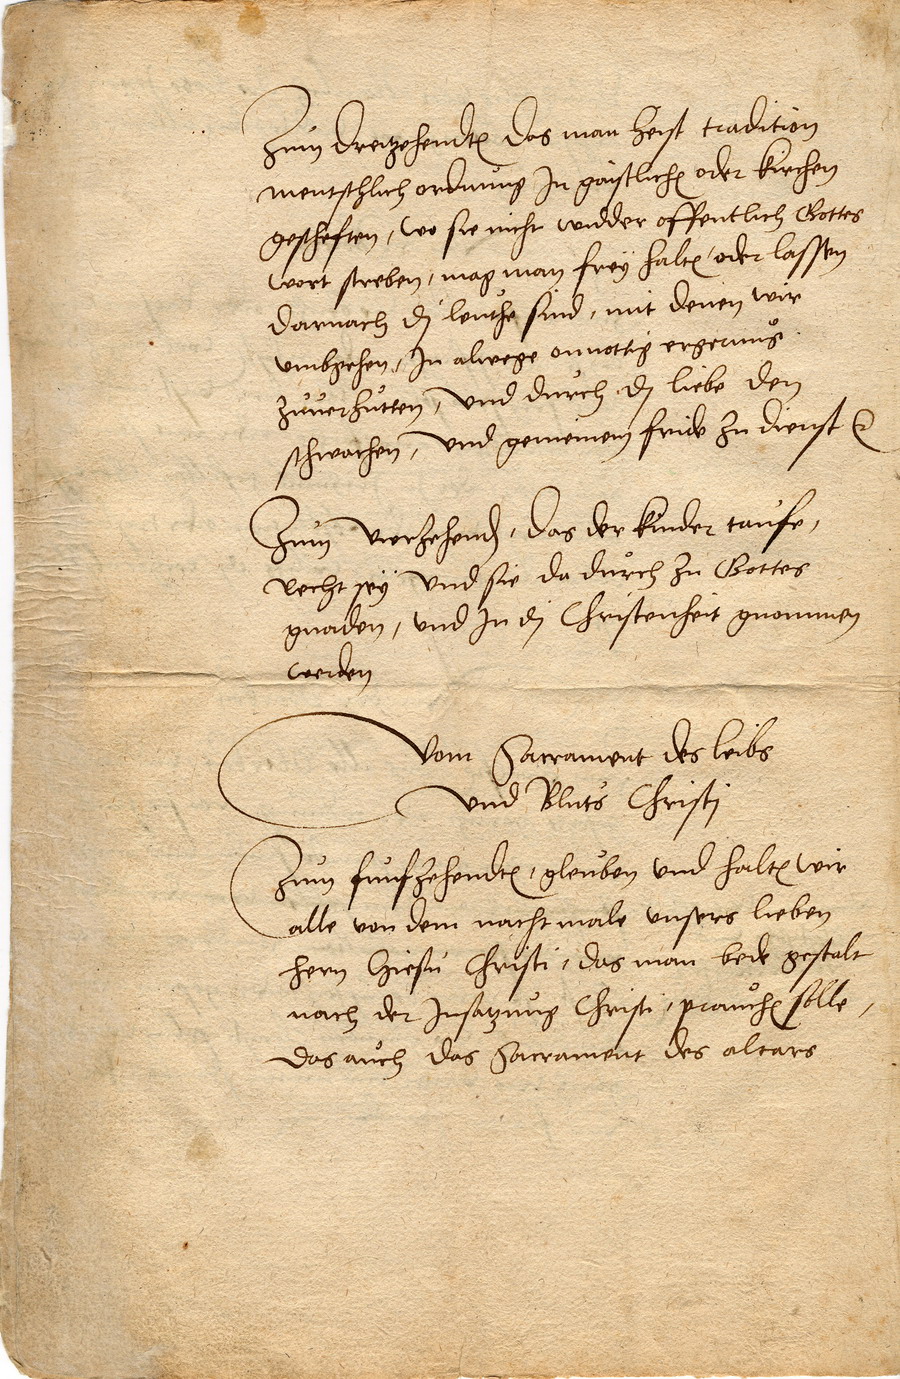 Zum dreitzehendten das man heist tradition
mentschlich ordnung In gaistlichen oder kirchen
gescheften, wo sie nicht widder offentlich Gottes
wort streben, mag man frey halten oder lassen
darnach di leuthe sind, mit denen wir
umbgehen, In alwege onnottig ergernus
zuuerhutten, Und durch di liebe den
schwachen, Und gemeinem fride zu dienst &c
Zum vierzehend, das der kinder taufe,
recht sey Und sie da durch zu Gottes
gnaden, und In di Christenheit gnommen
werden
Vom Sacrament des leibs
und Bluts Christi
Zum funfzehendten, gleuben und halten wir
alle von dem nachtmale unsers lieben
hern Hiesu Christi, das man bede gestalt
nach der Insatzung Christi, prauchen solle,
das auch das Sacrament des altars